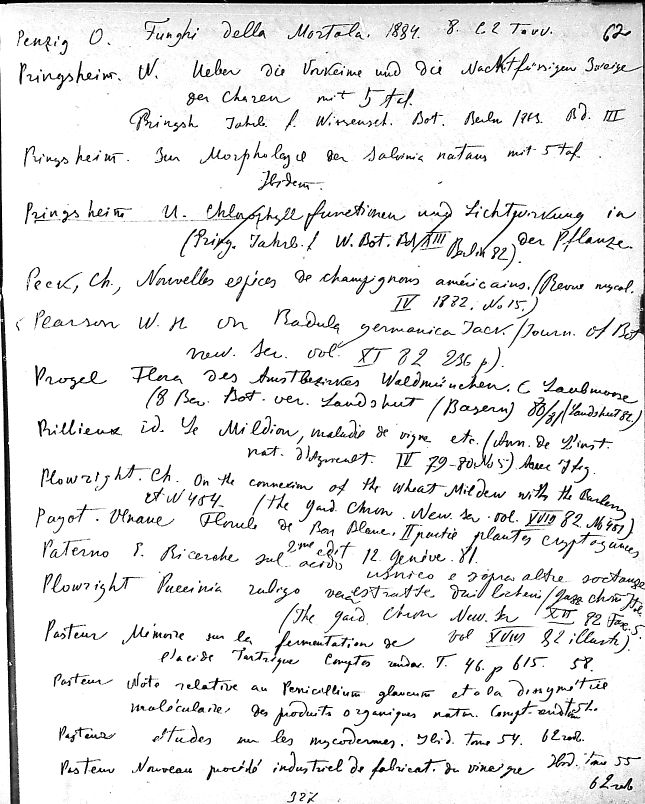 Penzig O. Funghi della Mortola. 1884. 8. C 2 Tavv. 62
Pringsheim. N. Ueber die Vorkeime und die Nacktfüssigen Zweige
der Charen mit 5 taf.
Pringsh Jahrb. f. Wissensch. Bot. Berlin 1863. Bd. III
Pringsheim. Zur Morphologie der Salvinia natans mit 5 taf.
Ibidem.
Pringsheim N. Chlorophyll functionen und Lichtwirkung in
der Pflanze.
(Pring. Jahrb. f. W. Bot. Bd XIII Berlin 82).
Peck, Ch., Nouvelles espèces de champignons américains. (Revue mycol.
IV 1882. No 15.)
Pearson W. H on Radula germanica Jack. (Journ. of Bot
new. Ser. vol. XI 82 236 p).
Progel Flora des Amtsbezirkes Waldmünchen. C Laubmoose
(8 Ber. Bot. ver. Landshut (Bayern) 80/81 (Landshut 82)
Prillieux Ed. Le Mildiou, maladie de vigne etc. (Ann. de l'inst.
nat. d'Agronomt. IV 79-80 No 5) avec fig.
Plowright. Ch. On the connexion of the wheat Mildew with the Barberry
(the gard. Chron. New. Ser. vol. XVIII 82 No 451)
et N 454.
Payot. Venance Florule de Mon Blanc. II partie plantes cryptogames
2me edit 12. Genève. 81.
Paterno E. Ricerche sul acido usnico e sopra altre sostanze
estratte dai licheni (gazz. chim.
XII 82 Fasc. 5.
Plowright Puccinia rubigo vera
(the gard. Chron New. Ser
vol XVIII 82 illustr).
Pasteur Mémoire sur la fermentation de
l'acide Tartrique Comptes rendus. T. 46. p 615. 58.
Pasteur Note relative au Penicillium glaucum et à la dissymétrie
moléculaire des produits organiques natur. Compt. rend
Pasteur études sur les mycodermes. Ibid. tome 54. 62
Pasteur Nouveau procédé industriel de fabricat. du vinaigre Ibid. tome 55
62
327